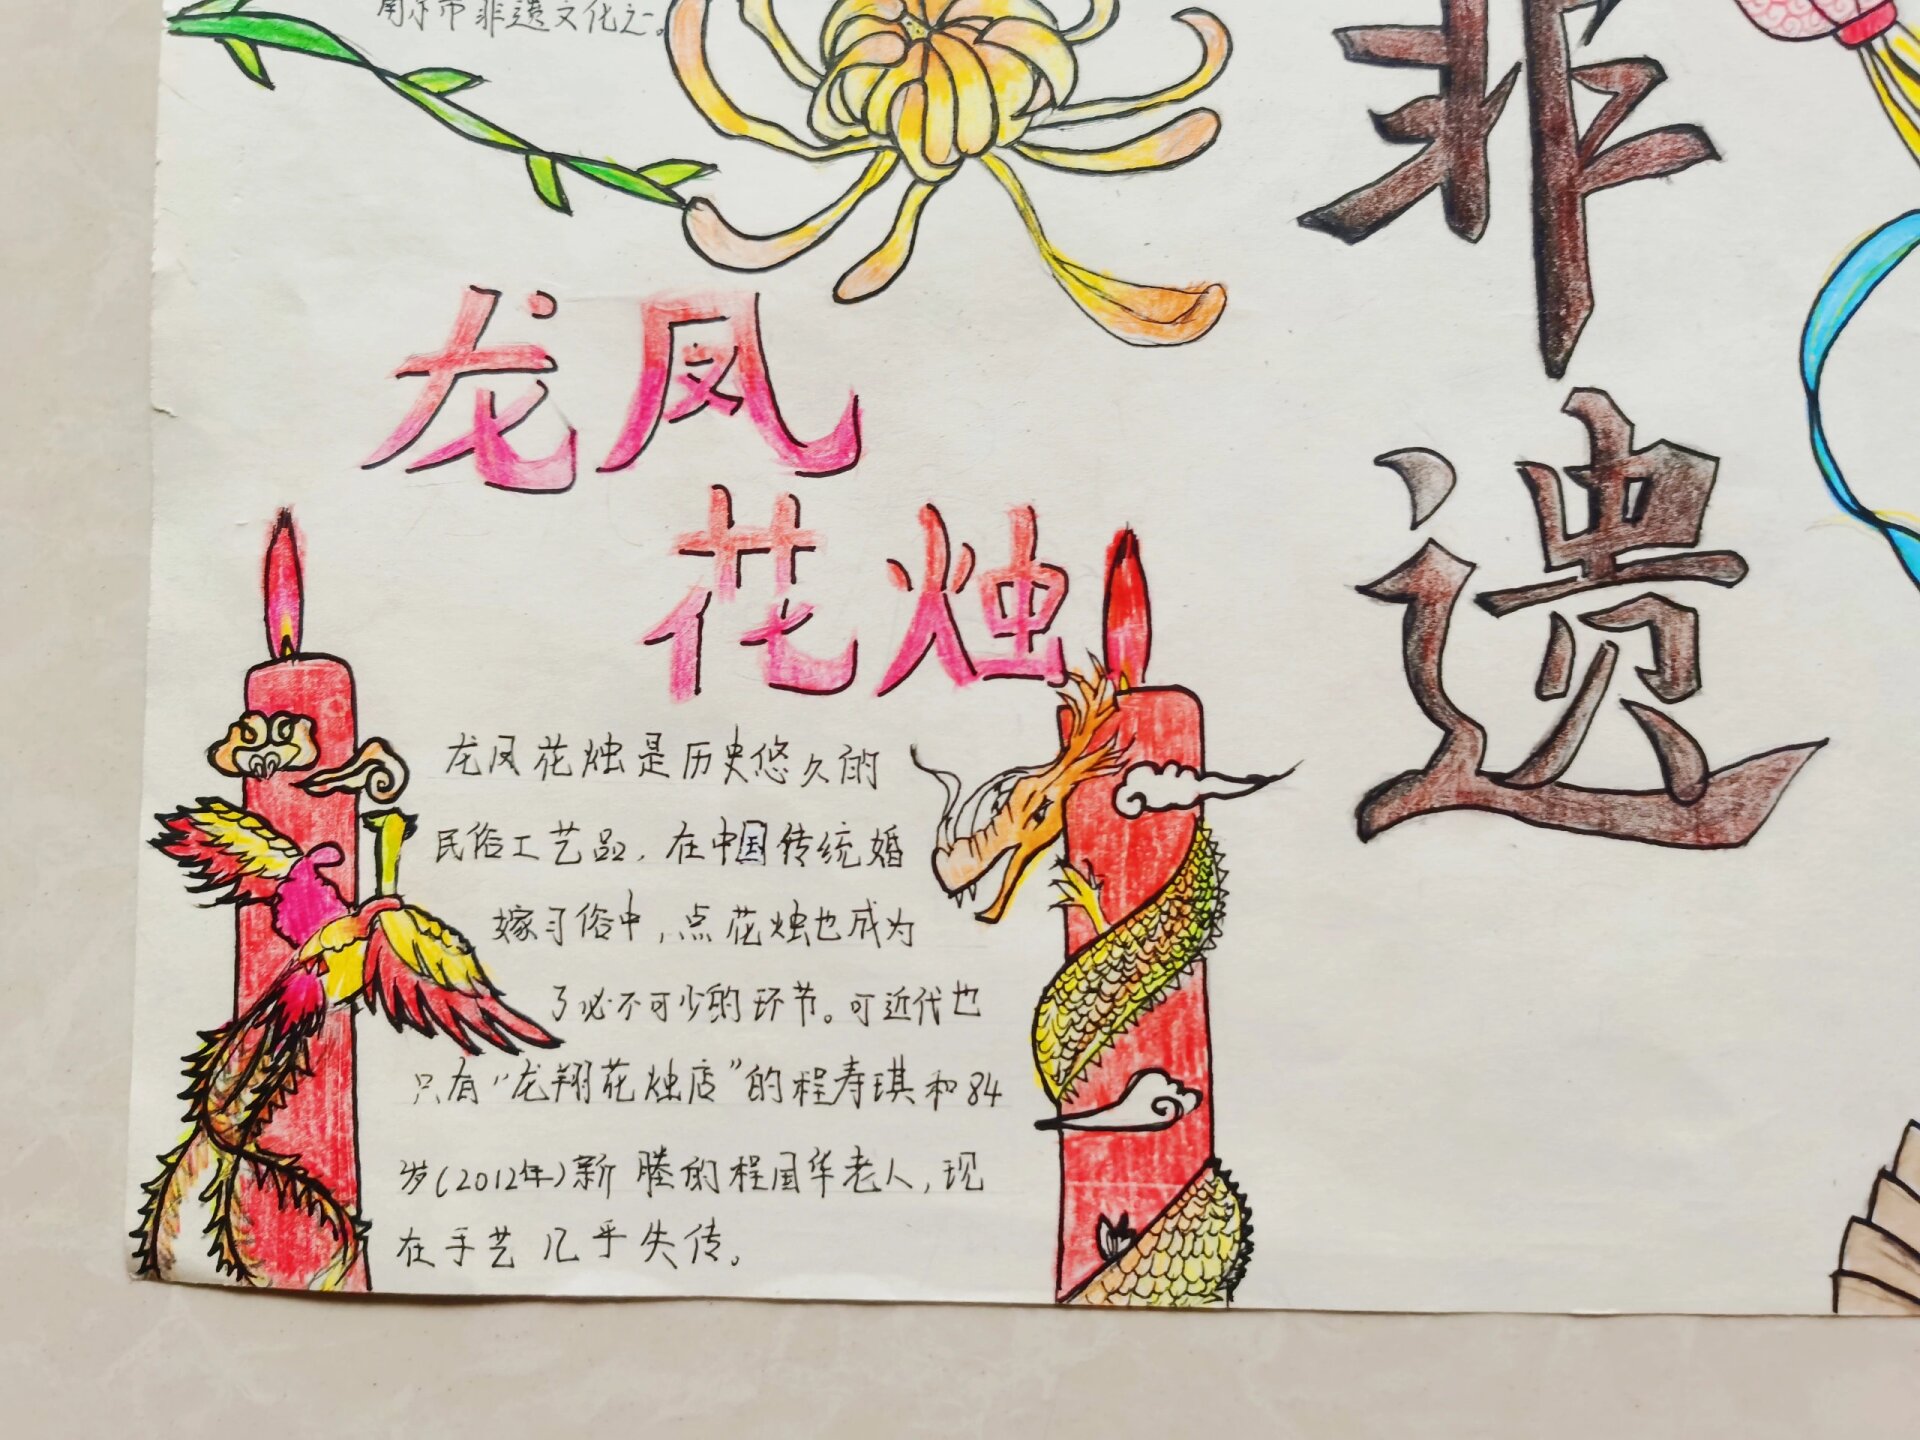 南京市非遗文化之一。
非
遗
龙凤
花烛
龙凤花烛是历史悠久的
民俗工艺品，在中国传统婚
嫁习俗中，点花烛也成为
了必不可少的环节。可近代也
只有“龙翔花烛店”的程寿琪和84
岁(2012年)新塍的程国华老人，现
在手艺几乎失传。